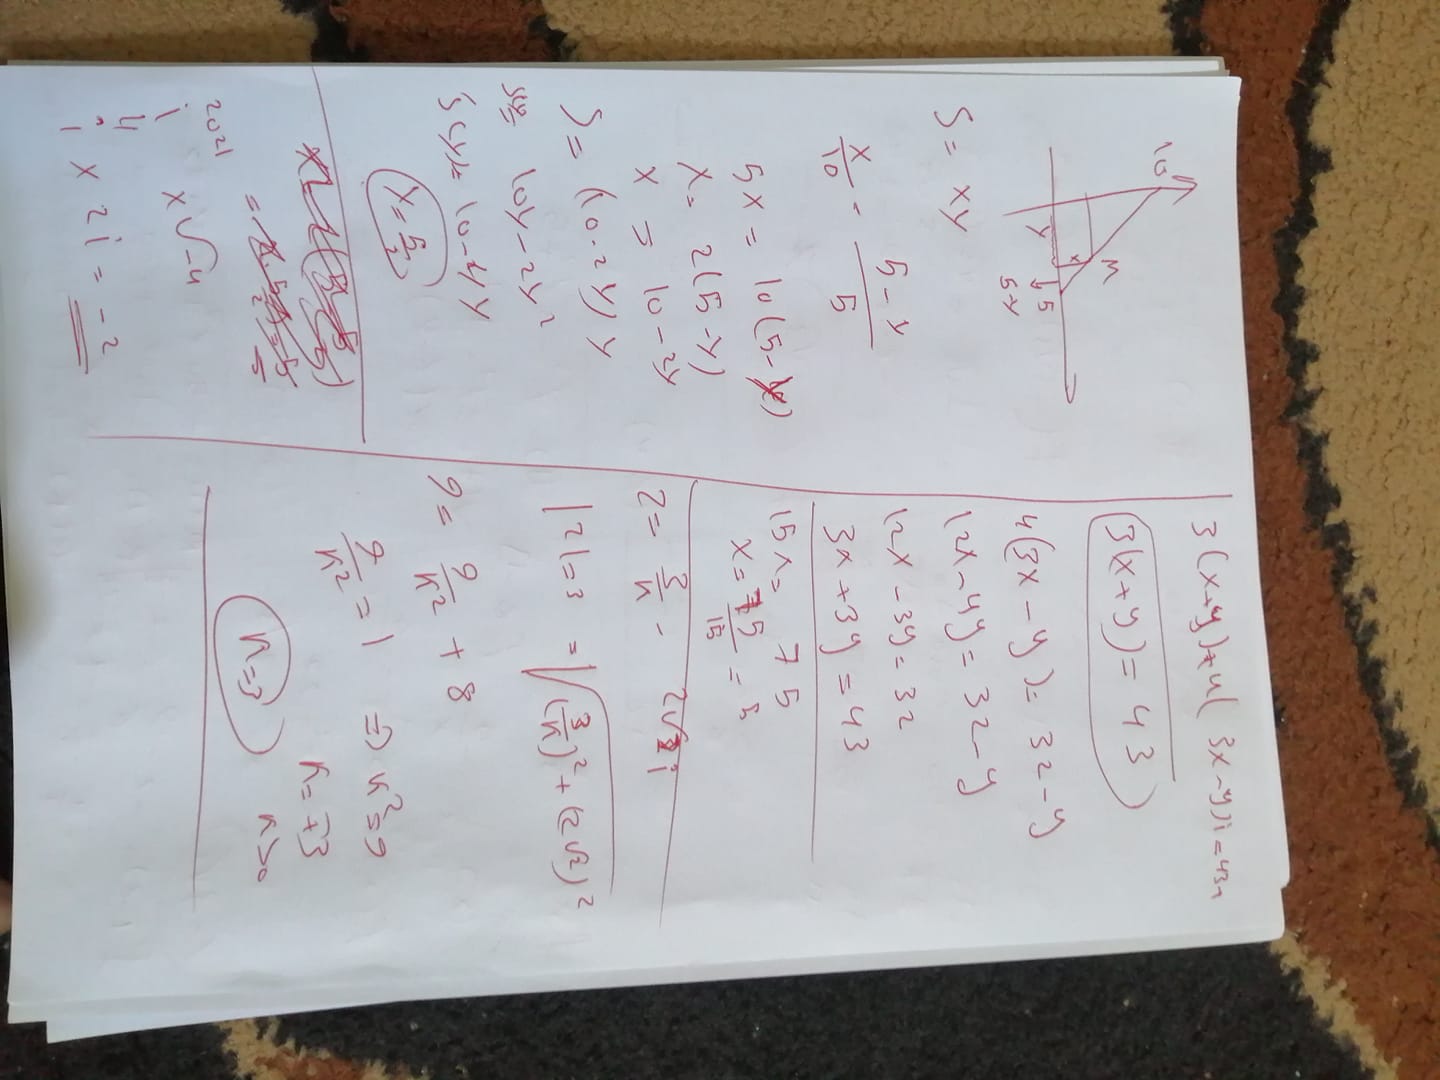 10
M
x
y
5
5y
S = xy
x/10 = (5-y)/5
5x = 10(5-y)
x = 2(5-y)
x = 10-2y
S = (10-2y)y
10y-2y²
10-4y
y = 5/2
2021
i x √-4
4
i x 2i = -2
3(x+y)+4(3x-y)i=43+
3(x+y) = 43
4(3x-y) = 32-y
12x-4y = 32-y
12x-3y = 32
3x+3y = 43
15x = 75
x = 75/15 = 5
Z = 3/k - 2√2i
|Z|=3 = √(3/k)²+(2√2)²
9 = 9/k² + 8
9/k² = 1 ⇒ k²=9
k = ∓3
k=3 k>0